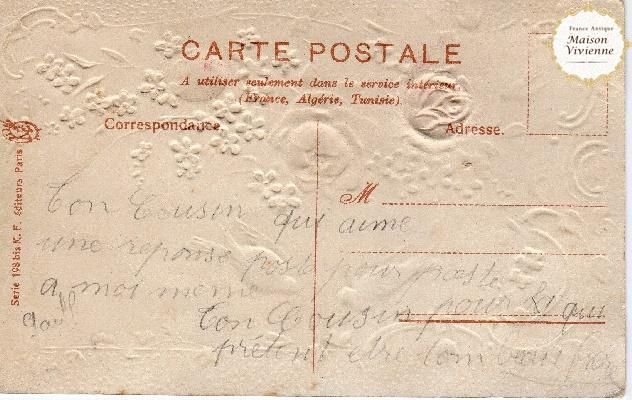 CARTE POSTALE
A utiliser seulement dans le service intérieur
(France, Algérie, Tunisie).
Correspondance.
Adresse.
M
Ton Cousin qui aime
une reponse poste pour poste
a moi meme
Ton Cousin pour qui
prétent etre
Serie 198 bis K. F. éditeurs Paris
France Antique
Maison
Vivienne